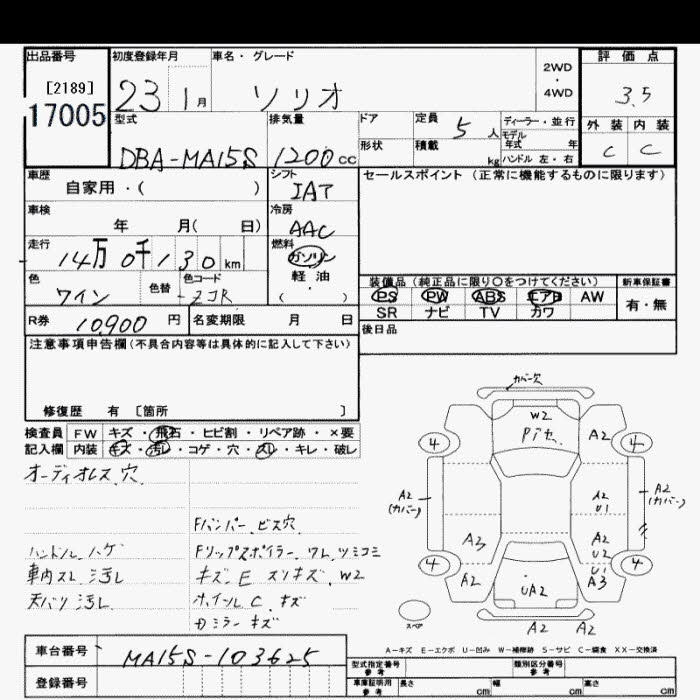 出品番号
[2189]
17005
初度登録年月
23 1月
車名・グレード
ソリオ
2WD
・
4WD
評価点
3.5
外装 内装
C C
型式
DBA-MA15S
排気量
1200cc
ドア
形状
定員
5人
積載
kg
ディーラー・並行
モデル
年式 年
ハンドル 左・右
車歴
自家用・( )
シフト
IAT
セールスポイント(正常に機能するものに限ります)
車検
年 月( 日)
冷房
AAC
走行
14万0千130km
燃料
ガソリン
軽油
( )
色
ワイン
色替
色コード
ZCR
装備品(純正品に限り○をつけてください)
PS PW ABS エアB AW
SR ナビ TV カワ
新車保証書
有・無
R券 10,900円
名変期限 月 日
後日品
注意事項申告欄(不具合内容等は具体的に記入して下さい)
修復歴 有 〔箇所 〕
検査員
記入欄
FW キズ・飛石・ヒビ割・リペア跡・×要
内装 キズ・汚レ・コゲ・穴・スレ・キレ・破レ
オーディオレス穴
ハンドル ハゲ
車内スレ 汚レ
天バリ 汚レ
Fバンパー ビス穴
Fリップスポイラー ワレ ツミコミ
キズ E スリキズ W2
ホイールC キズ
カバー欠
W2
A2
4
4
A2
(カバー)
A2
U1
A2
(カバー)
A3
A2
U2
U1
A3
4
A2
UA2
4
スペア
A2 A2
A-キズ E-エクボ U-凹み W-補修跡 S-サビ C-腐食 XX-交換済
車台番号
MA15S-103625
登録番号
型式指定番号
参考
類別区分番号
参考
車庫証明用
参考
長さ cm
幅 cm
高さ cm